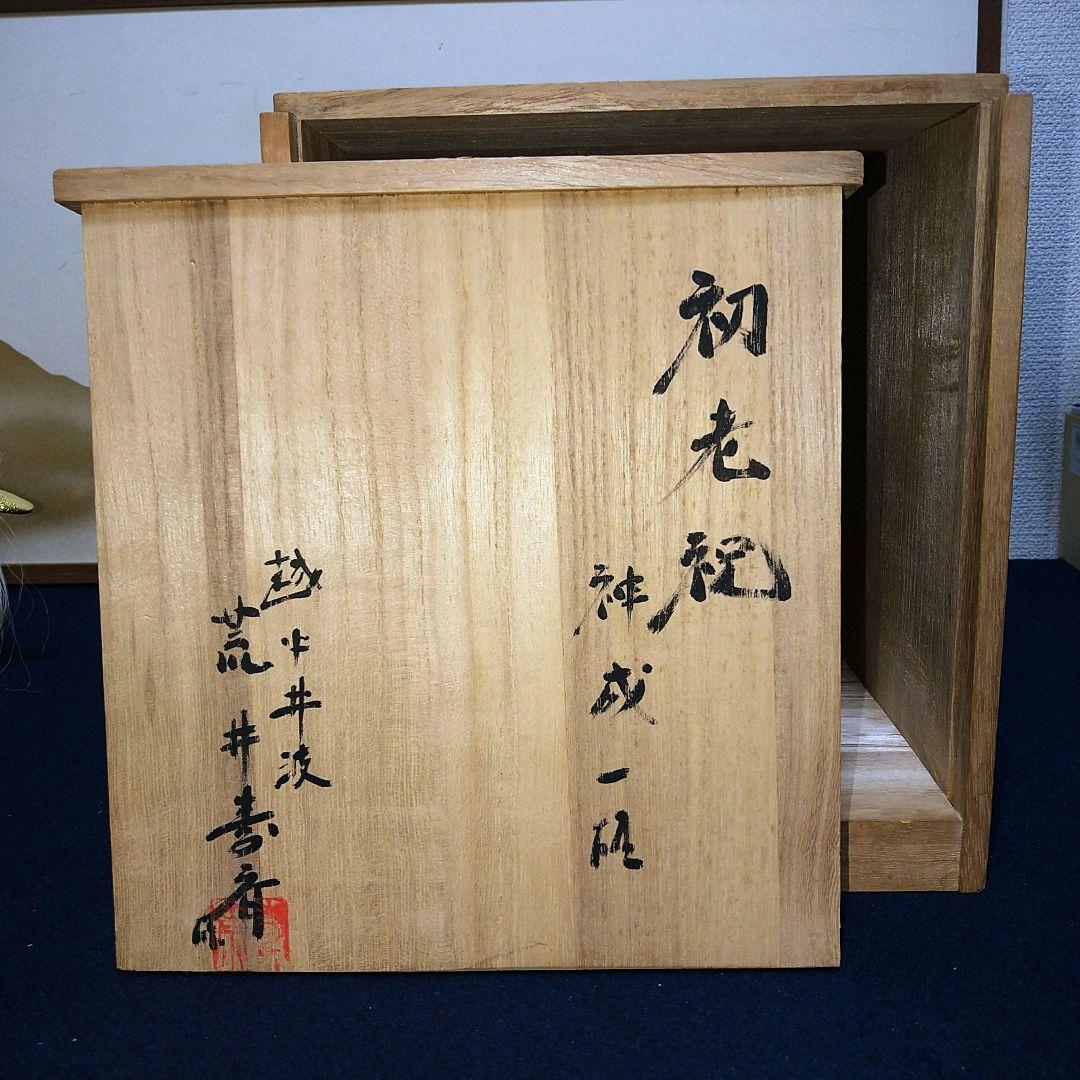 初老祝
神成一
越中井波
荒井寿斎